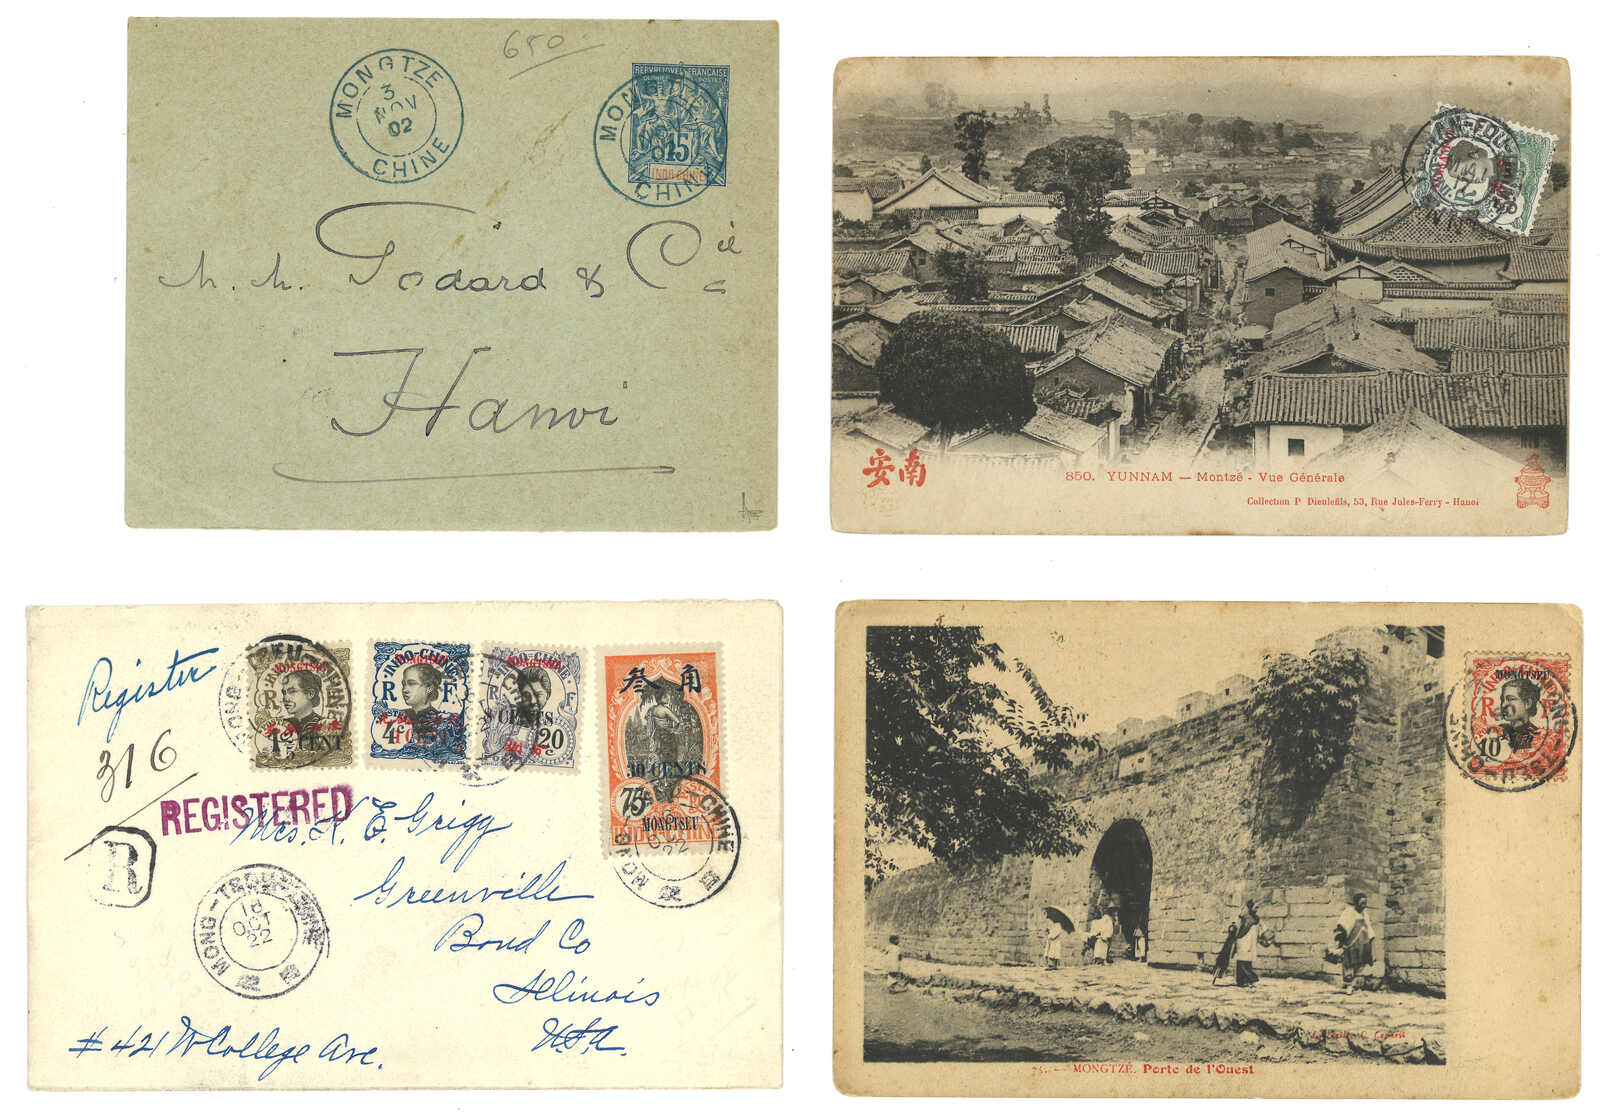 650
MONGTZE
3
NOV
02
CHINE
REPUBLIQUE FRANÇAISE
15
INDO-CHINE
MONGTZE
CHINE
M. M. Godard & Cie
Hanoi
安南
850. YUNNAM — Montzé - Vue Générale
Collection P Dieulefils, 53, Rue Jules-Ferry - Hanoi
Register
316
REGISTERED
R
MONGTSEU
R F
1 CENT
INDO-CHINE
MONGTSEU
R F
4c
1 CENT
MONGTSEU
8 CENTS
20c
叁角
30 CENTS
75c
MONGTSEU
INDO-CHINE
MONG-TSEU-CHINE
22
Mrs. K. E. Grigg
Greenville
Bond Co
Illinois
U.S.A.
MONG-TSEU-CHINE
18
OCT
22
蒙自
# 421 W College Ave.
MONGTSEU
R F
10c
MONGTZÉ. Porte de l'Ouest